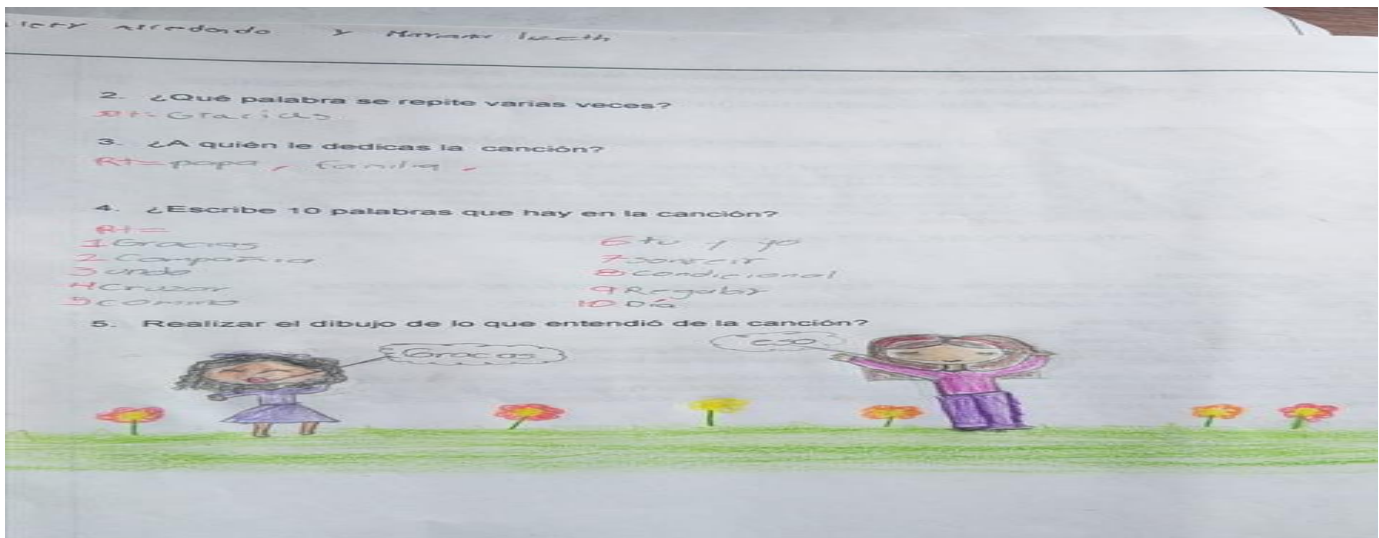 Arredondo y
2. ¿Qué palabra se repite varias veces?
Rt= Gracias
3. ¿A quién le dedicas la canción?
Rt= papa, familia,
4. ¿Escribe 10 palabras que hay en la canción?
Rt=
1 Gracias
2 Compañia
3 undo
4 Cruzar
5 commo
6 tu y yo
7 sonreir
8 condicional
9 Regalar
10 Día
5. Realizar el dibujo de lo que entendió de la canción?
Gracias
eso